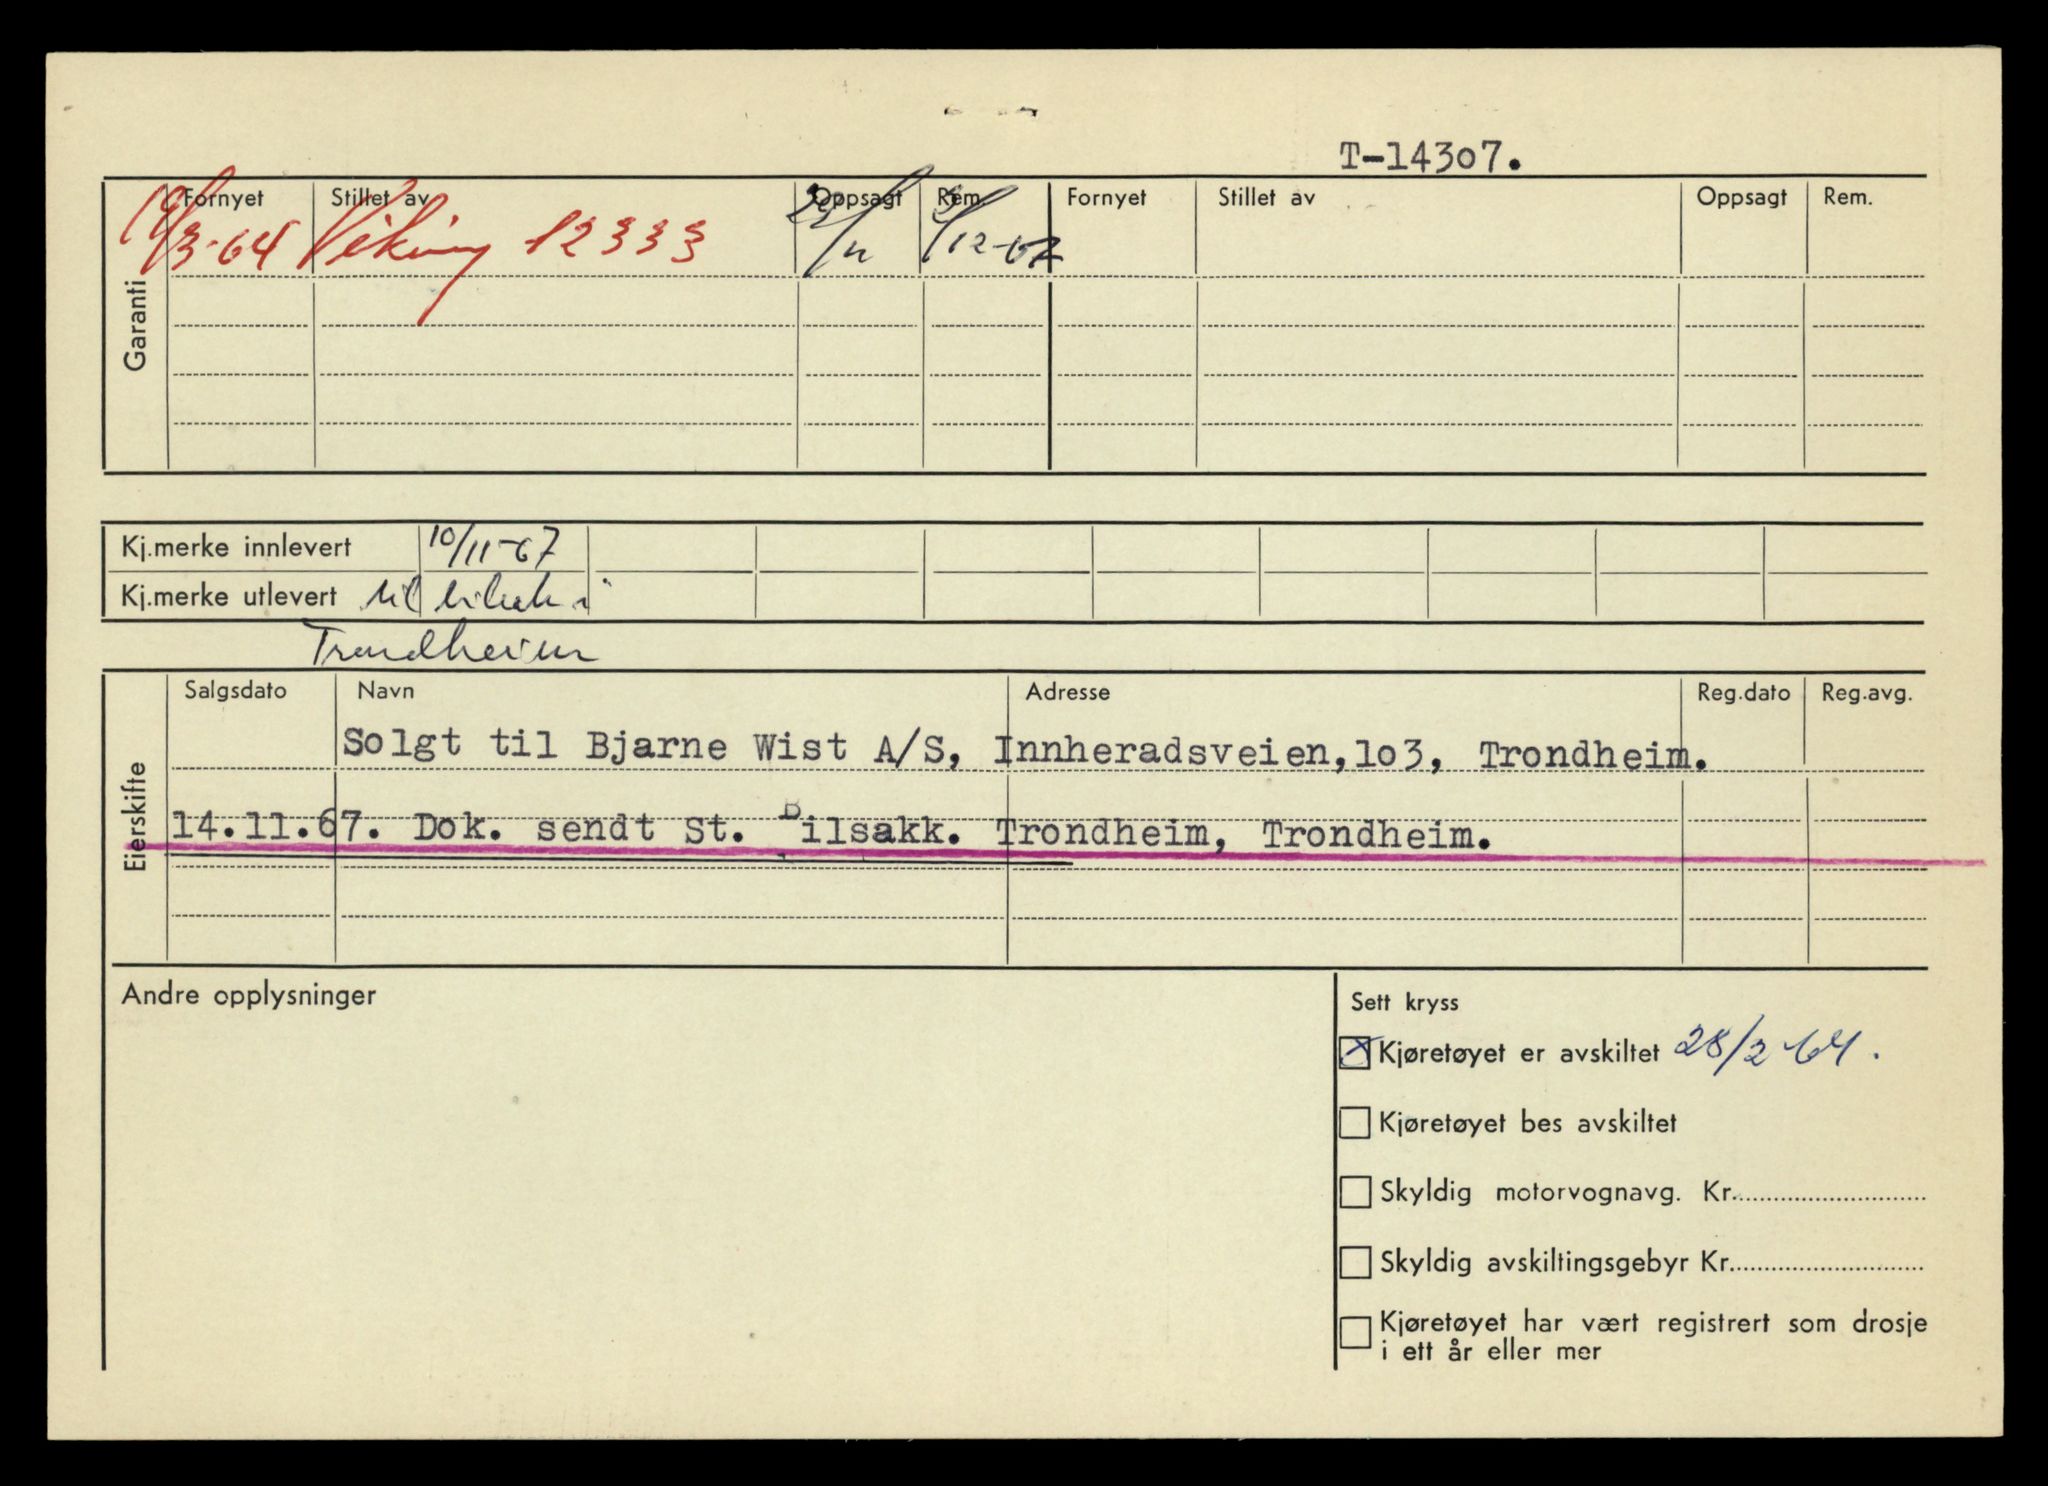 T-14307.
Garanti
Fornyet Stillet av Oppsagt Rem. Fornyet Stillet av Oppsagt Rem.
/3-64 Viking 12333 /11 /12-67
Kj.merke innlevert 10/11-67
Kj.merke utlevert til bilsak. i
Trondheim
Eierskifte
Salgsdato Navn Adresse Reg.dato Reg.avg.
Solgt til Bjarne Wist A/S, Innheradsveien,lo3, Trondheim.
14.11.67. Dok. sendt St. Bilsakk. Trondheim, Trondheim.
Andre opplysninger
Sett kryss
Kjøretøyet er avskiltet 28/2-64.
Kjøretøyet bes avskiltet
Skyldig motorvognavg. Kr.
Skyldig avskiltingsgebyr Kr.
Kjøretøyet har vært registrert som drosje
i ett år eller mer